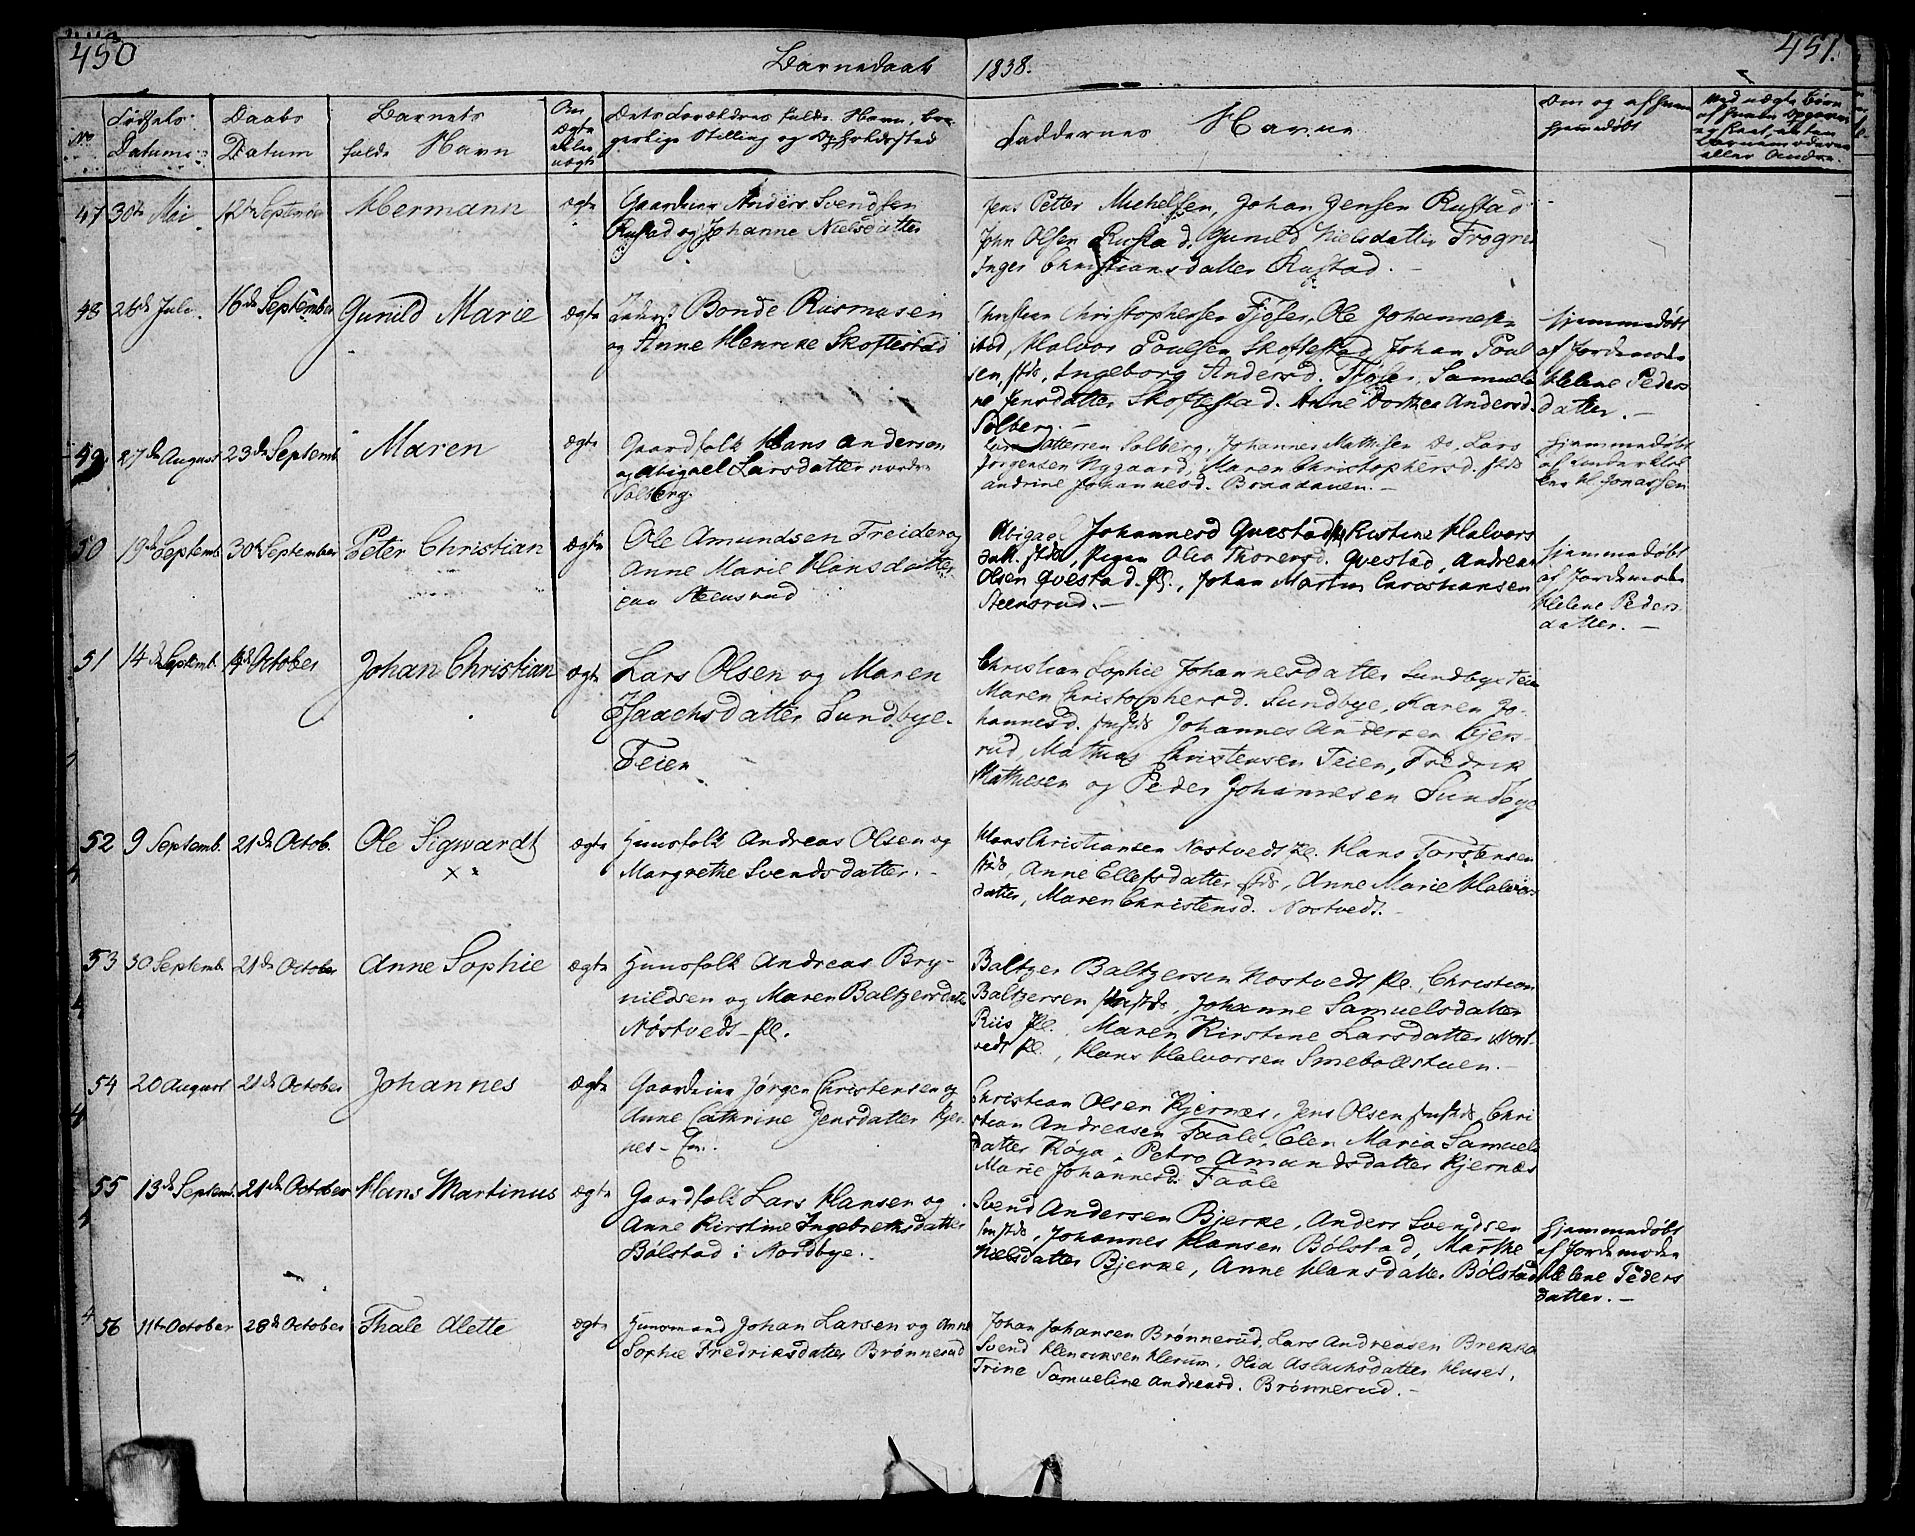 450
Barnedaab
1838.
451.
No
Fødsels Datum
Daabs Datum
Barnets fulde Navn
Om ægte eller uægte
Dets Forældres fulde Navn, Borgerlige Stilling og Opholdssted
Faddernes Navne
Om og af hvem hjemmedøbt
47 30te Mai 12te September Hermann ægte
Gaardmr Anders Svendsen
Rustad og Johanne Nielsdatter
Jens Petter Michelsen, Johan Jensen Rustad
John Olsen Rustad, Gunild Nielsdatter Frogner
Inger Christiansdatter Rustad.
48 26de Juli 16de September Gunild Marie ægte
Bonde Rasmusen
og Anne Henrike Skoftestad
Christian Christophersen Fjøser, Ole Johannesen
ibid, Halvor Poulsen Skoftestad Johan Poul
sen, Ingeborg Andersd. Fjøser, Samueli
ne Jensdatter Skoftestad. Anne Dorthea Andersd.
Solberg.
hjemmedøbt
af Jordemoder
Helene Peders
datter.
49 27de August 23de Septemb. Maren ægte
Gaardfolk Hans Andersen
og Abigael Larsdatter nordre
Solberg.
Solberg, Johannes Mathisen ds, Lars
Jørgensen Nygaard, Maren Christophersd.
Andrine Johannesd. Braadauen.
hjemmedøbt
H. Jonassen
50 19de Septemb. 30te September Peter Christian ægte
Ole Amundsen Treider og
Anne Marie Hansdatter
paa Steensrud
Abigael Johannesd Qvestad, Kirstine Halvors
datt. Pigen Olia Thorersd. Qvestad, Andreas
Olsen Qvestad. Pl., Johan Martin Christiansen
Steensrud.
hjemmedøbt
af Jordemoder
Helene Peders
datter.
51 14de Septemb. 14de October Johan Christian ægte
Lars Olsen og Maren
Isaachsdatter Sundbye-
Teien
Christian Sophie Johannesdatter Sundbye Teien
Maren Christophersd. Sundbye, Karen Jo-
hannesd. Johannes Andersen Kjers-
rud, Mathias Christensen Teien, Fredrik
Mathiesen og Peder Johannesen Sundbye
52 9 Septemb. 21de Octob. Ole Sigwardt ægte
Huusfolk Andreas Olsen og
Margrethe Svendsdatter.
Hans Christiansen Nostvedt pl. Hans Torstensen
Anne Ellefsdatter Anne Marie Halvors-
datter, Maren Christensd. Nostvedt.
53 30 Septemb. 21de October Anne Sophie ægte
Huusfolk Andreas Bry-
nildsen og Maren Baltzersdatter
Nøstvedt-pl.
Baltzer Baltzersen Nostvedt pl., Christian
Baltzersen Johanne Samuelsdatter
Riis pl. Maren Kirstine Larsdatter Nost-
vedt pl., Hans Halvorsen Smebølstuen.
54 20 August 21de October Johannes ægte
Gaardmr Jørgen Christensen og
Anne Cathrine Jensdatter Kjer-
nes
Christian Olsen Kjernæs, Jens Olsen Chri
stian Andreasen Faale, Elen Maria Samuels
datter Køya, Petro Amundsdatter Kjernæs
Marie Johannesd. Faale
55 13de Septemb. 21de October Hans Martinus ægte
Gaardfolk Lars Hansen og
Anne Kirstine Ingebretsdatter
Bølstad i Nordbye.
Svend Andersen Bjerke, Anders Svendsen
Johannes Hansen Bølstad, Marthe
Nielsdatter Bjerke, Anne Hansdatter Bølstad
hjemmedøbt
af Jordemoder
Helene Peders
datter.
56 11te October 28de October Thale Alette ægte
Huusmand Johan Larsen og Anne
Sophie Fredriksdatter Brønnerud
Johan Johansen Brønnerud, Lars Andreasen Brekke
Svend Henriksen Herum, Olia Aslachsdatter Huser,
Trine Samueline Andreasd. Brønnerud.